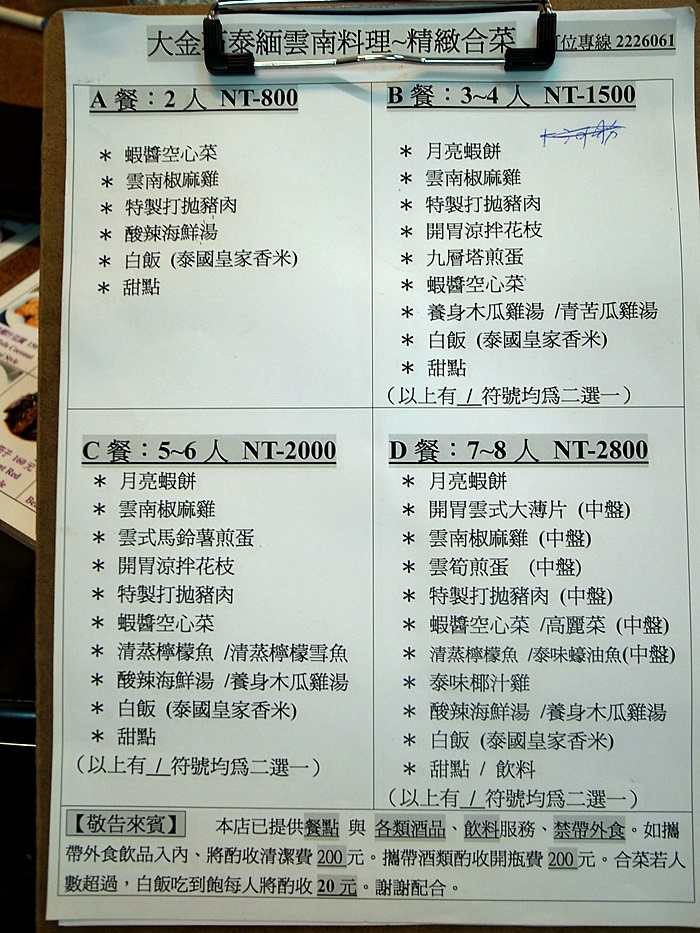 大金 泰緬雲南料理~精緻合菜 位專線 2226061
A 餐：2 人 NT-800
* 蝦醬空心菜
* 雲南椒麻雞
* 特製打拋豬肉
* 酸辣海鮮湯
* 白飯 (泰國皇家香米)
* 甜點
B 餐：3~4 人 NT-1500
* 月亮蝦餅
* 雲南椒麻雞
* 特製打拋豬肉
* 開胃涼拌花枝
* 九層塔煎蛋
* 蝦醬空心菜
* 養身木瓜雞湯 /青苦瓜雞湯
* 白飯 (泰國皇家香米)
* 甜點
(以上有 / 符號均爲二選一)
C 餐：5~6 人 NT-2000
* 月亮蝦餅
* 雲南椒麻雞
* 雲式馬鈴薯煎蛋
* 開胃涼拌花枝
* 特製打拋豬肉
* 蝦醬空心菜
* 清蒸檸檬魚 /清蒸檸檬雪魚
* 酸辣海鮮湯 /養身木瓜雞湯
* 白飯 (泰國皇家香米)
* 甜點
(以上有 / 符號均爲二選一)
D 餐：7~8 人 NT-2800
* 月亮蝦餅
* 開胃雲式大薄片 (中盤)
* 雲南椒麻雞 (中盤)
* 雲筍煎蛋 (中盤)
* 特製打拋豬肉 (中盤)
* 蝦醬空心菜 /高麗菜 (中盤)
* 清蒸檸檬魚 /泰味蠔油魚(中盤)
* 泰味椰汁雞
* 酸辣海鮮湯 /養身木瓜雞湯
* 白飯 (泰國皇家香米)
* 甜點 / 飲料
(以上有 / 符號均爲二選一)
【敬告來賓】 本店已提供餐點 與 各類酒品、飲料服務、禁帶外食。如攜
帶外食飲品入內、將酌收清潔費 200 元。攜帶酒類酌收開瓶費 200 元。合菜若人
數超過，白飯吃到飽每人將酌收 20 元。謝謝配合。